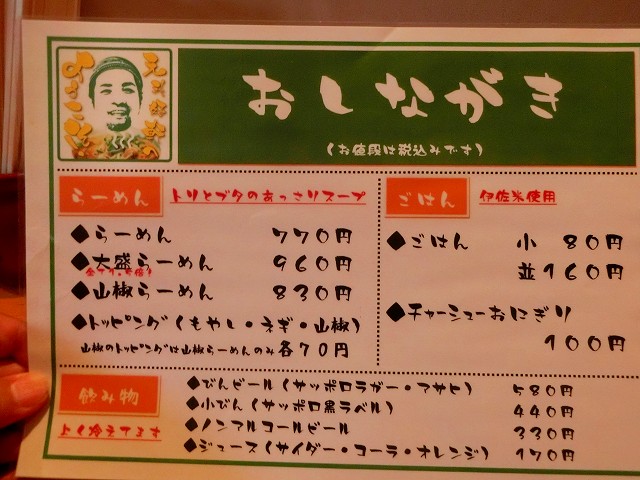 おしながき
(お値段は税込みです)
らーめん
トリとブタのあっさりスープ
◆らーめん 770円
◆大盛らーめん 960円
◆山椒らーめん 830円
◆トッピング(もやし・ネギ・山椒)
山椒のトッピングは山椒らーめんのみ 各70円
ごはん
伊佐米使用
◆ごはん 小 80円
並160円
◆チャーシューおにぎり
100円
飲み物
よく冷えてます
◆びんビール(サッポロラガー・アサヒ) 580円
◆小びん(サッポロ黒ラベル) 440円
◆ノンアルコールビール 330円
◆ジュース(サイダー・コーラ・オレンジ) 170円